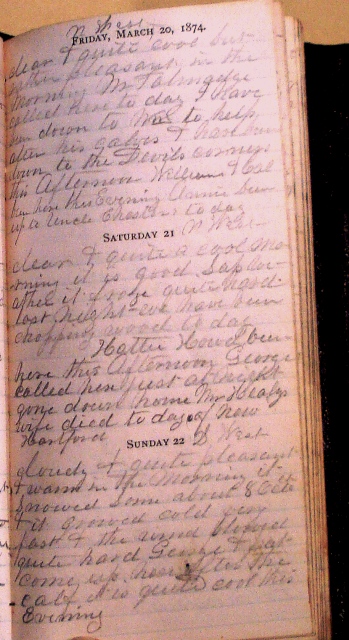 N West
FRIDAY, MARCH 20, 1874.
clear & quite cool but
rather pleasant in the
morning Mr Talmadge
called here to day I have
been down to to help
after his calves & have been
down to the Devils corners
this Afternoon William & Cal
been here this Evening Annie been
up to Uncle Chesters to day
SATURDAY 21 N West
clear & quite a cool mo-
rning it is good Sap we-
ather it froze quite hard
last night we have been
chopping wood to day
Hattie Howd been
here this Afternoon George
called here just at night
gone down home Mr Healys
wife died to day of New
Hartford
SUNDAY 22 S West
cloudy & quite pleasant
& warm in the morning it
snowed some about 8 Oclk
& it growed cold very
fast & the wind blowed
quite hard George &
come up here after the
calf it is quite cool this
Evening